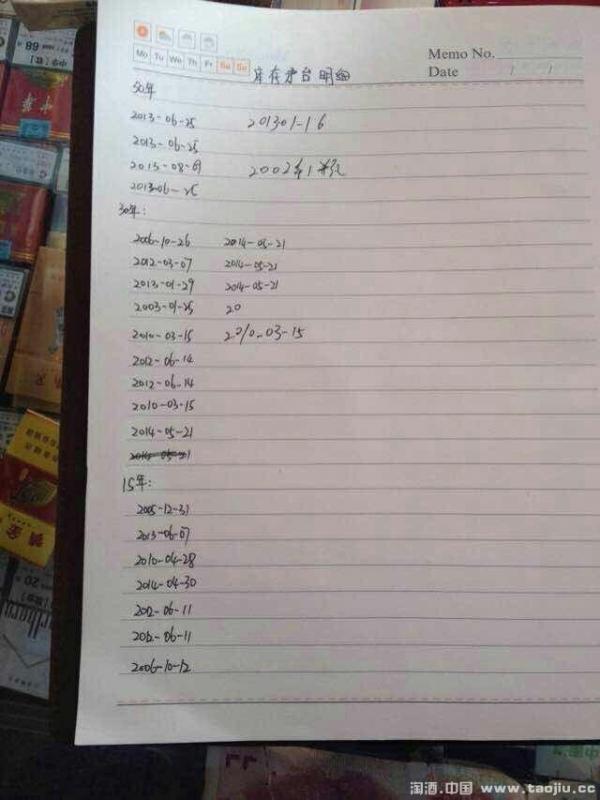 Memo No.
Mo Tu We Th Fr Sa Su
Date / /
库存茅台明细
50年
2013-06-25 201301-16
2013-06-25
2013-08-09 2002年1
2013-06-25
30年:
2006-10-26 2014-05-21
2012-03-07 2014-05-21
2013-01-29 2014-05-21
2003-01-25 20
2010-03-15 2010-03-15
2012-06-14
2012-06-14
2010-03-15
2014-05-21
2014-05-21
15年:
2005-12-31
2013-06-07
2010-04-28
2014-04-30
2012-06-11
2012-06-11
2006-10-12
68
中华
黄金
20
Marlboro
淘酒.中国 www.taojiu.cc